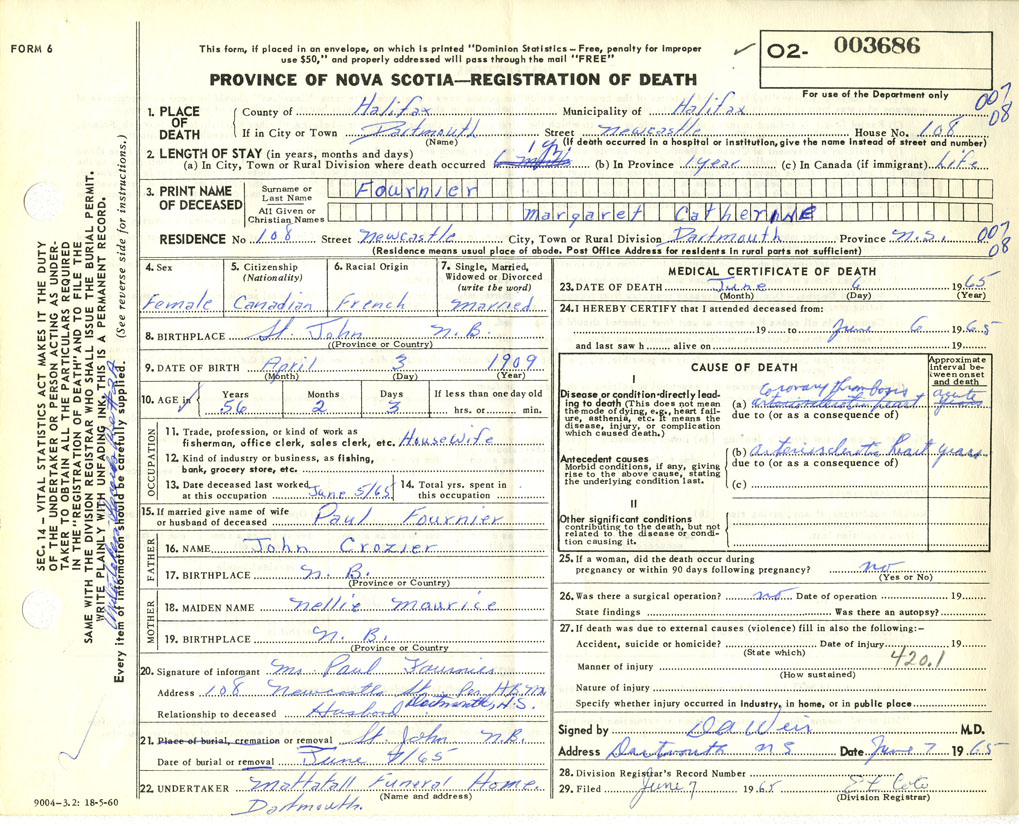 FORM 6
This form, if placed in an envelope, on which is printed "Dominion Statistics – Free, penalty for improper
use $50," and properly addressed will pass through the mail "FREE"
PROVINCE OF NOVA SCOTIA—REGISTRATION OF DEATH
✓ 02- 003686
For use of the Department only
007
08
1. PLACE OF DEATH
County of Halifax Municipality of Halifax
If in City or Town Dartmouth Street Newcastle House No. 108
(Name) (If death occurred in a hospital or institution, give the name instead of street and number)
2. LENGTH OF STAY (in years, months and days)
(a) In City, Town or Rural Division where death occurred 1 yr. (b) In Province 1 year (c) In Canada (if immigrant) Life
3. PRINT NAME OF DECEASED
Surname or Last Name Fournier
All Given or Christian Names Margaret Catherine
RESIDENCE No 108 Street Newcastle City, Town or Rural Division Dartmouth Province N.S. 007
08
(Residence means usual place of abode. Post Office Address for residents in rural parts not sufficient)
4. Sex Female
5. Citizenship (Nationality) Canadian
6. Racial Origin French
7. Single, Married, Widowed or Divorced (write the word) Married
8. BIRTHPLACE St. John N.B.
(Province or Country)
9. DATE OF BIRTH April 3 1909
(Month) (Day) (Year)
10. AGE in ✓ Years 56 Months 2 Days 3 If less than one day old hrs. or min.
OCCUPATION
11. Trade, profession, or kind of work as fisherman, office clerk, sales clerk, etc. Housewife
12. Kind of industry or business, as fishing, bank, grocery store, etc
13. Date deceased last worked at this occupation June 5/65
14. Total yrs. spent in this occupation
15. If married give name of wife or husband of deceased Paul Fournier
FATHER
16. NAME John Crozier
17. BIRTHPLACE N.B.
(Province or Country)
MOTHER
18. MAIDEN NAME Nellie Maurice
19. BIRTHPLACE N.B.
(Province or Country)
20. Signature of informant Mr. Paul Fournier
Address 108 Newcastle St. Per H.B.M.
Dartmouth, N.S.
Relationship to deceased Husband
21. Place of burial, cremation or removal St. John N.B.
Date of burial or removal June /65
22. UNDERTAKER Mattatall Funeral Home.
(Name and address)
Dartmouth.
9004–3.2: 18-5-60
MEDICAL CERTIFICATE OF DEATH
23. DATE OF DEATH June 6 1965
(Month) (Day) (Year)
24. I HEREBY CERTIFY that I attended deceased from:
19 to June 6 1965
and last saw h alive on 19
CAUSE OF DEATH
Approximate interval between onset and death
I
Disease or condition directly leading to death (This does not mean the mode of dying, e.g., heart failure, asthenia, etc. It means the disease, injury, or complication which caused death.)
(a) Coronary thrombosis acute
arteriosclerotic heart years
due to (or as a consequence of)
Antecedent causes
Morbid conditions, if any, giving rise to the above cause, stating the underlying condition last.
(b) arteriosclerotic heart years
due to (or as a consequence of)
(c)
II
Other significant conditions contributing to the death, but not related to the disease or condition causing it.
25. If a woman, did the death occur during pregnancy or within 90 days following pregnancy? no
(Yes or No)
26. Was there a surgical operation? no Date of operation 19
State findings Was there an autopsy?
27. If death was due to external causes (violence) fill in also the following:–
Accident, suicide or homicide? Date of injury 19
(State which)
420.1
Manner of injury
(How sustained)
Nature of injury
Specify whether injury occurred in industry, in home, or in public place
Signed by DA Weir M.D.
Address Dartmouth NS Date June 7 1965
28. Division Registrar's Record Number
29. Filed June 7 1965
(Division Registrar)
SEC. 14 – VITAL STATISTICS ACT MAKES IT THE DUTY
OF THE UNDERTAKER OR PERSON ACTING AS UNDER-
TAKER TO OBTAIN ALL THE PARTICULARS REQUIRED
IN THE "REGISTRATION OF DEATH" AND TO FILE THE
SAME WITH THE DIVISION REGISTRAR WHO SHALL ISSUE THE BURIAL PERMIT.
WRITE PLAINLY WITH UNFADING INK. THIS IS A PERMANENT RECORD.
Every item of information should be carefully supplied. (See reverse side for instructions.)